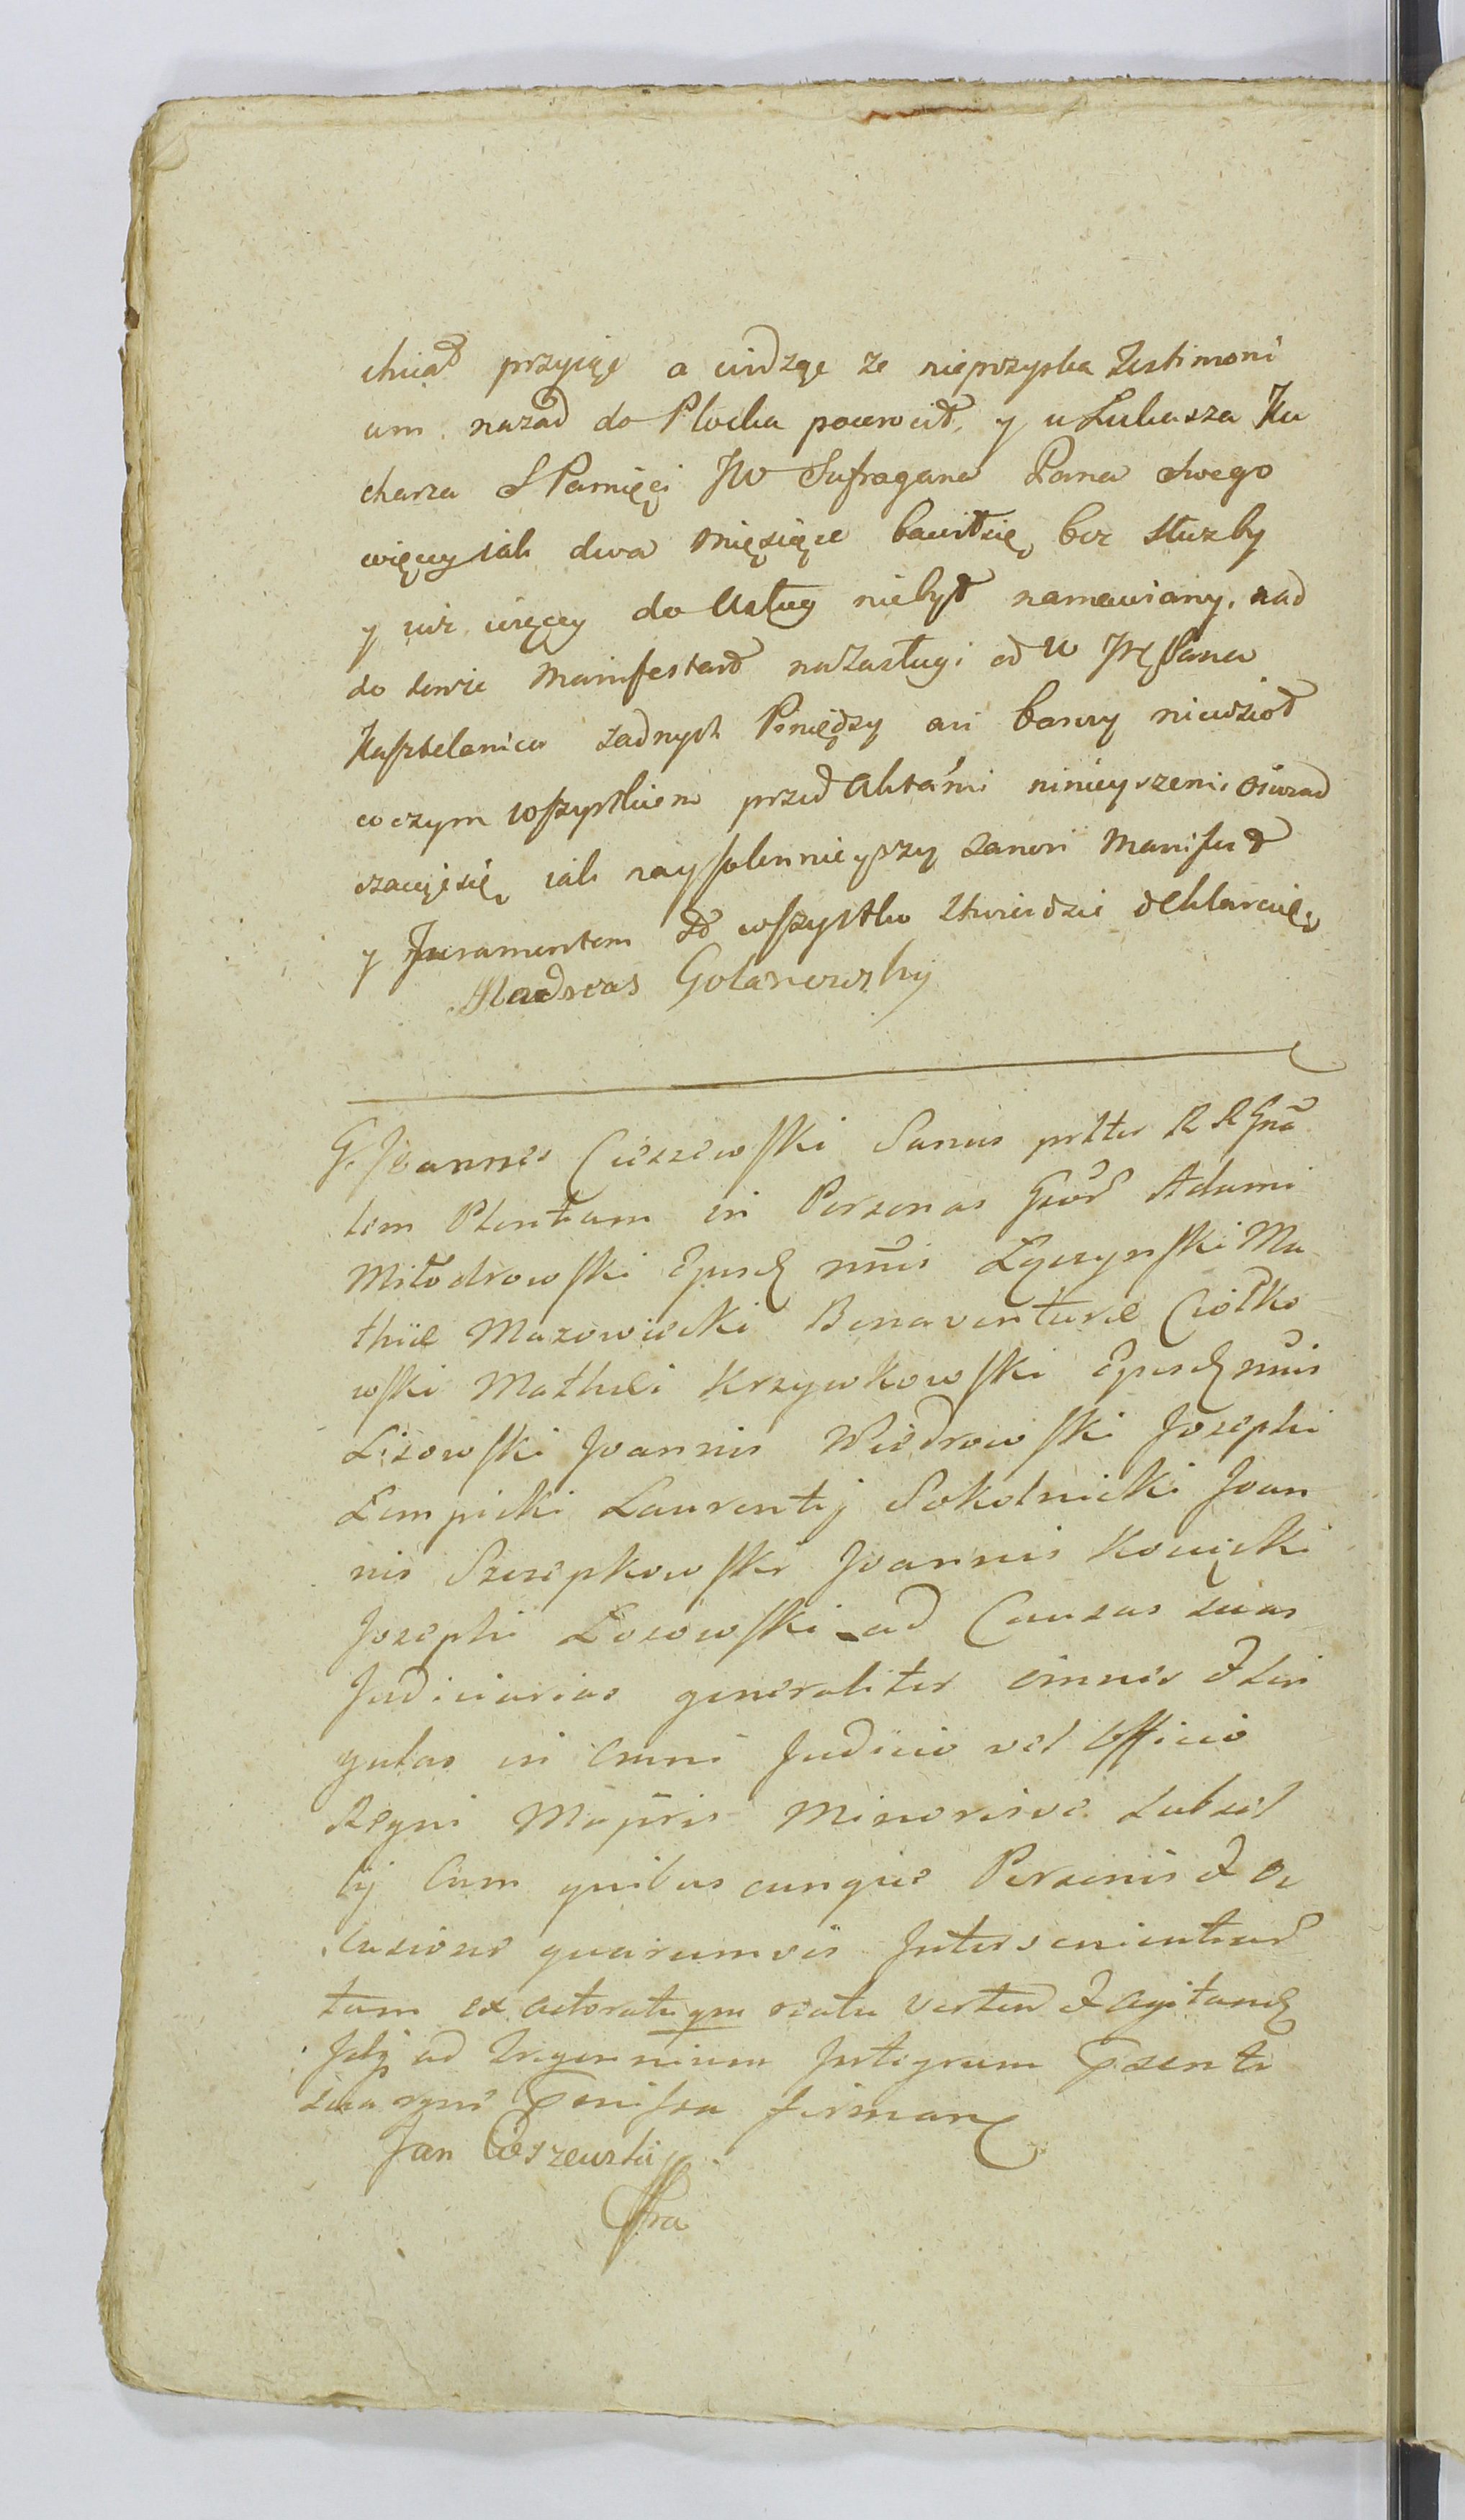 chciał przyięę a widzęc ze nieprzyska Testimoni
um nazad do Plocka powrocił, y u Lukasza Ku
charza S Pamięci JW Sufragana Pana swego
więcy iak dwa Mięsięce bawiłsię, bez słuzby
y iuz więcey do Usług niebył namawiany, nad
to lewie Manifestard nazasługi od W JM Pana
Kasztelanica zadnych Piniędzy ani barwy niewzioł
w czym wszystkiem przed Aktámi ninieyszemi oswiad
czaięsię, iak naysolennieyszy zanosi Manifest
y Juramentem to wszystko stwierdzic deklaruię,
Jladreas Golanowsky
G. Joannes Cieszewski Sanus prtter R R Gna
lem Plentiam in Personas Gsor Adami
Miłodrowski Ejusd nnis Lęczynski Ma
thiæ Mazowiecki Bonaventuræ Ciołko
wski Mathei Krzywkowski Ejusd nnis
Lisowski Joannis Wiedrowski Josephi
Lempicki Laurentij Sokolnicki Joan
nis Szczepkowski Joannis Kowięcki
Josephi Losowski ad Causas suas
Judiciarias generaliter omnes & sin
gulas in omni Judicio vel Officio
Regni Majoris Minorisve Subsel
lij Cum quibuscunque Personis & oc
casione quarumvis Intervenientiar
tam ex actoratu qm reatu verten & agitand
ad Trigennium Integrum Psente
sua Firmanq
Jan Cieszewski